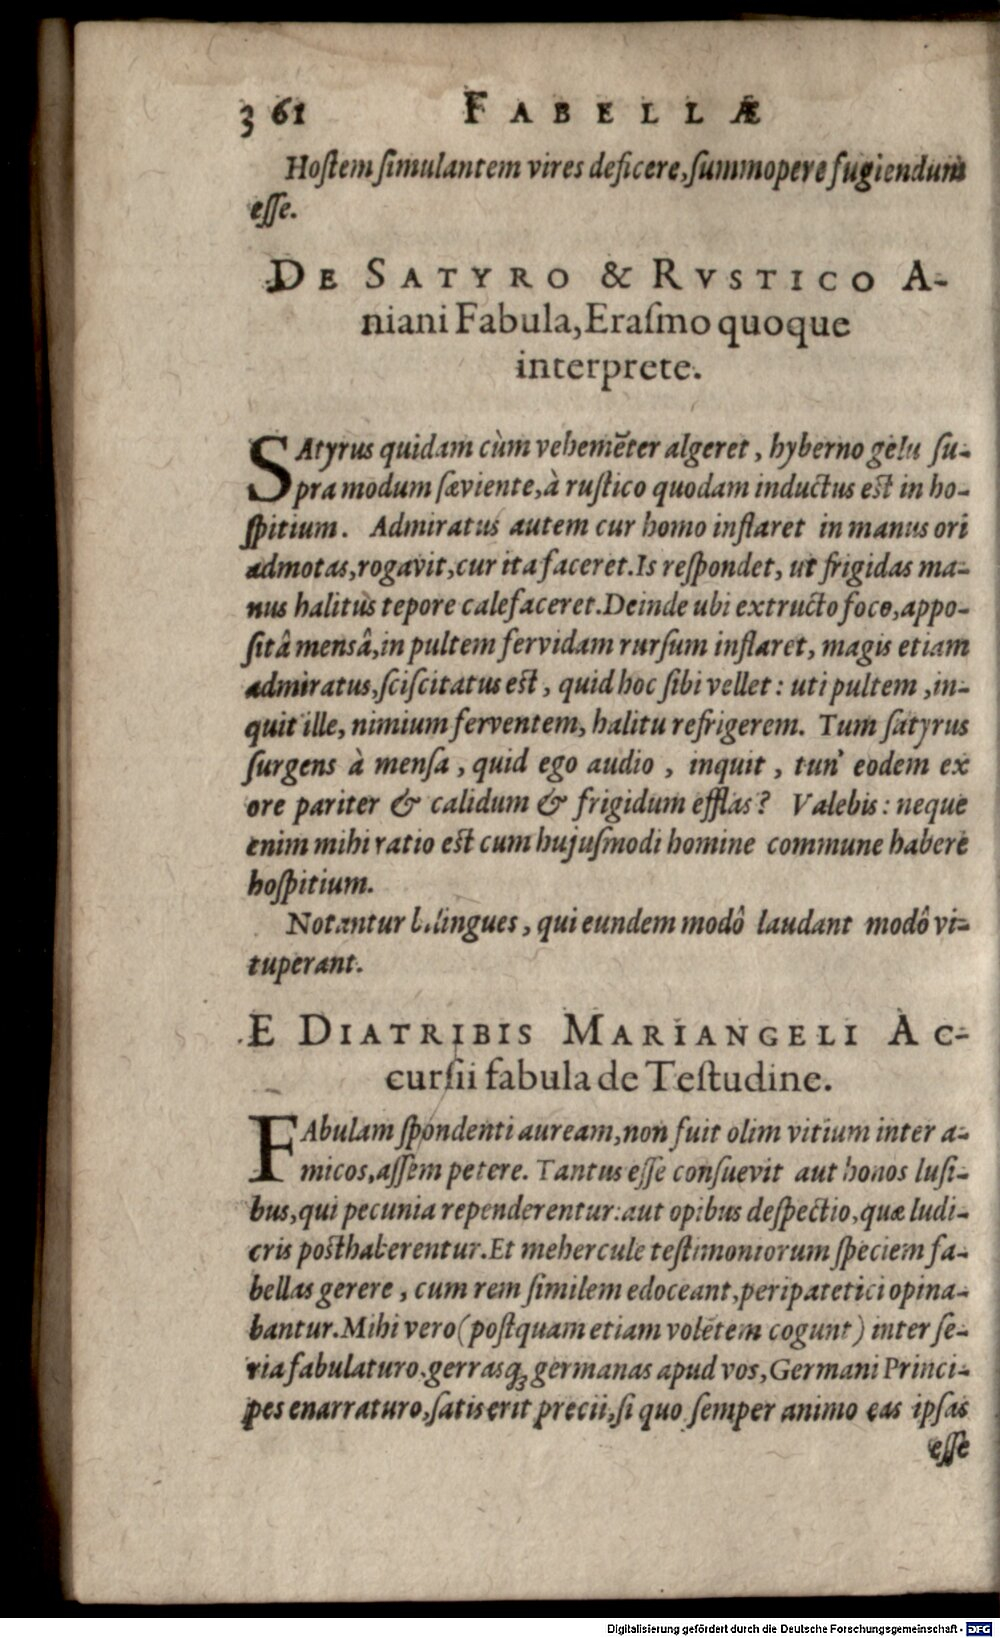 361 FABELLÆ
Hoſtem ſimulantem vires deficere, ſummopere fugiendum
eſſe.
DE SATYRO & RVSTICO A-
niani Fabula, Eraſmo quoque
interprete.
SAtyrus quidam cùm vehemẽter algeret, hyberno gelu ſu-
pra modum ſæviente, à ruſtico quodam inductus eſt in ho-
ſpitium. Admiratus autem cur homo inflaret in manus ori
admotas, rogavit, cur ita faceret. Is reſpondet, ut frigidas ma-
nus halitus tepore calefaceret. Deinde ubi extructo foco, appo-
ſitâ mensâ, in pultem fervidam rurſum inflaret, magis etiam
admiratus, ſciſcitatus eſt, quid hoc ſibi vellet: uti pultem, in-
quit ille, nimium ferventem, halitu refrigerem. Tum ſatyrus
ſurgens à menſa, quid ego audio, inquit, tun' eodem ex
ore pariter & calidum & frigidum efflas? Valebis: neque
enim mihi ratio eſt cum hujuſmodi homine commune habere
hoſpitium.
Notantur bilingues, qui eundem modô laudant modô vi-
tuperant.
E DIATRIBIS MARIANGELI AC-
curſii fabula de Teſtudine.
FAbulam ſpondenti auream, non fuit olim vitium inter a-
micos, aſſem petere. Tantus eſſe conſuevit aut honos luſi-
bus, qui pecunia rependerentur: aut opibus deſpectio, quæ ludi-
cris poſthaberentur. Et mehercule teſtimoniorum ſpeciem fa-
bellas gerere, cum rem ſimilem edoceant, peripatetici opina-
bantur. Mihi vero (poſtquam etiam volẽtem cogunt) inter ſe-
ria fabulaturo, gerrasq; germanas apud vos, Germani Princi-
pes enarraturo, ſatis erit precii, ſi quo ſemper animo eas ipſas
eſſe
Digitalisierung gefördert durch die Deutsche Forschungsgemeinschaft - DFG